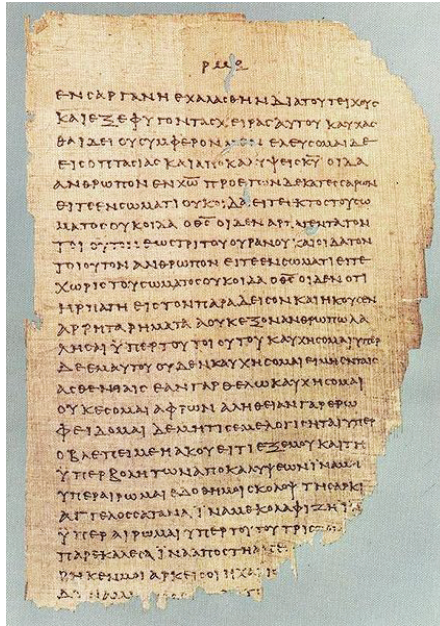 ΕΝϹΑΡΓΑΝΗΕΧΑΛΑϹΘΗΝΔΙΑΤΟΥΤΕΙΧΟΥϹ
ΚΑΙΕΞΕΦΥΓΟΝΤΑϹΧΕΙΡΑϹΑΥΤΟΥΚΑΥΧΑϹ
ΘΑΙΔΕΙΟΥϹΥΜΦΕΡΟΝ ΕΛΕΥϹΟΜΑΙΔΕ
ΕΙϹΟΠΤΑϹΙΑϹΚΑΙΑΠΟΚΑΛΥΨΕΙϹΚ̅Υ̅ΟΙΔΑ
ΑΝΘΡΩΠΟΝΕΝΧ̅Ω̅ΠΡΟΕΤΩΝΔΕΚΑΤΕϹϹΑΡΩΝ
ΕΙΤΕΕΝϹΩΜΑΤΙΟΥΚΟΙΔΑΕΙΤΕΕΚΤΟϹΤΟΥϹΩ
ΜΑΤΟϹΟΥΚΟΙΔΑΟΘ̅Ϲ̅ΟΙΔΕΝΑΡΠΑΓΕΝΤΑΤΟΝ
ΤΟΙΟΥΤΟΝΕΩϹΤΡΙΤΟΥΟΥΡΑΝΟΥΚΑΙΟΙΔΑΤΟΝ
ΤΟΙΟΥΤΟΝΑΝΘΡΩΠΟΝΕΙΤΕΕΝϹΩΜΑΤΙΕΙΤΕ
ΧΩΡΙϹΤΟΥϹΩΜΑΤΟϹΟΥΚΟΙΔΑΟΘ̅Ϲ̅ΟΙΔΕΝΟΤΙ
ΗΡΠΑΓΗΕΙϹΤΟΝΠΑΡΑΔΕΙϹΟΝΚΑΙΗΚΟΥϹΕΝ
ΑΡΡΗΤΑΡΗΜΑΤΑΑΟΥΚΕΞΟΝΑΝΘΡΩΠΩΛΑ
ΛΗϹΑΙΫΠΕΡΤΟΥΤΟΙΟΥΤΟΥΚΑΥΧΗϹΟΜΑΙΥΠΕΡ
ΔΕΕΜΑΥΤΟΥΟΥΔΕΝΚΑΥΧΗϹΟΜΑΙΕΙΜΗΕΝΤΑΙϹ
ΑϹΘΕΝΕΙΑΙϹΕΑΝΓΑΡΘΕΛΩΚΑΥΧΗϹΟΜΑΙ
ΟΥΚΕϹΟΜΑΙΑΦΡΩΝΑΛΗΘΕΙΑΝΓΑΡΕΡΩ
ΦΕΙΔΟΜΑΙΔΕΜΗΤΙϹΕΜΕΛΟΓΙϹΗΤΑΙΥΠΕΡ
ΟΒΛΕΠΕΙΜΕΗΑΚΟΥΕΙΤΙΕΞΕΜΟΥΚΑΙΤΗ
ΫΠΕΡΒΟΛΗΤΩΝΑΠΟΚΑΛΥΨΕΩΝΪΝΑΜΗ
ΥΠΕΡΑΙΡΩΜΑΙΕΔΟΘΗΜΟΙϹΚΟΛΟΨΤΗϹΑΡΚΙ
ΑΓΓΕΛΟϹϹΑΤΑΝΑΪΝΑΜΕΚΟΛΑΦΙΖΗΪΝ
ΫΠΕΡΑΙΡΩΜΑΙΥΠΕΡΤΟΥΤΟΥΤΡΙϹ
ΠΑΡΕΚΑΛΕϹΑΪΝΑΑΠΟϹΤΗ
ΡΗΚΕΝΜΟΙΑΡΚΕΙϹΟΙΗΧΑΡΙϹ